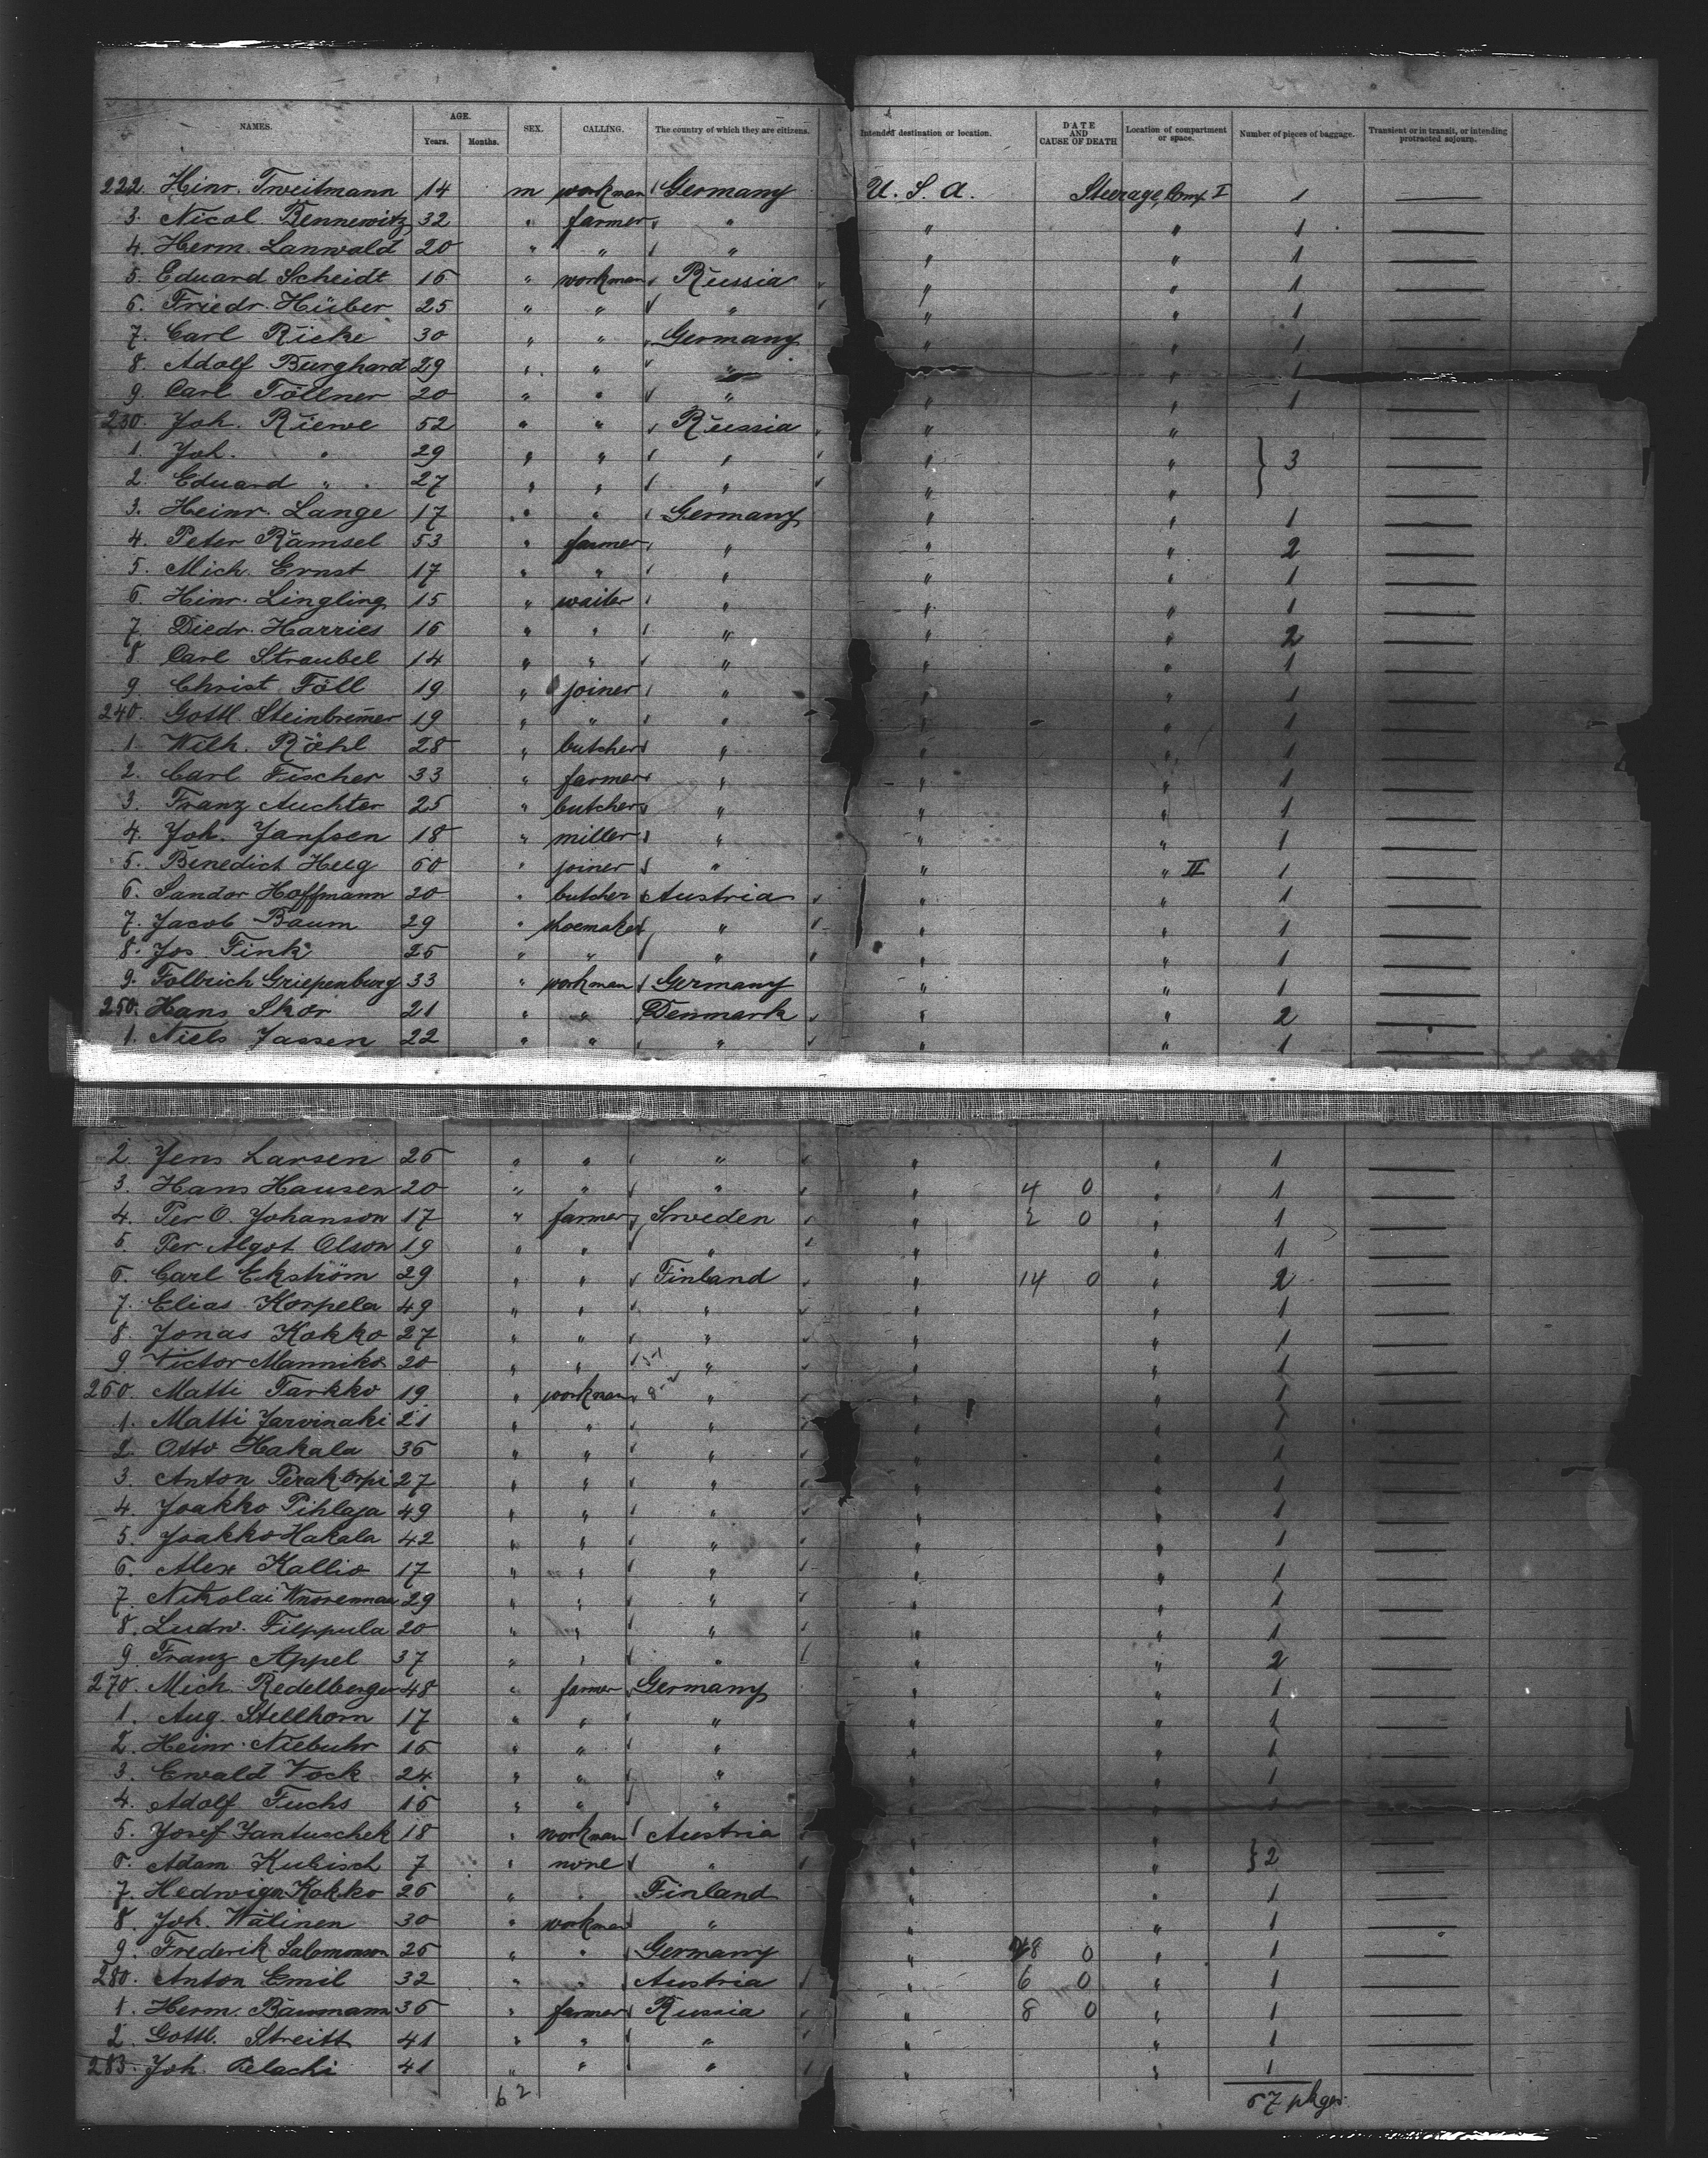 NAMES. AGE. Years. Months. SEX. CALLING. The country of which they are citizens. Intended destination or location. DATE AND CAUSE OF DEATH Location of compartment or space. Number of pieces of baggage. Transient or in transit, or intending protracted sojourn.
222. Hinr. Tweitmann 14 m workman Germany U. S. A. Steerage, Comp. I 1 —
3. Nicol. Bennewitz 32 " farmer " " " 1 —
4. Herm. Lanwald 20 " " " " " 1 —
5. Eduard Scheidt 16 " workman Russia " " 1 —
6. Friedr. Hüber 25 " " " " " 1 —
7. Carl Ricke 30 " " Germany " " 1 —
8. Adolf Burghard 29 " " " " 1 —
9. Carl Töllner 20 " " " " " 1 —
230. Joh. Riewe 52 " " Russia " " —
1. Joh. " 29 " " " " " } 3 —
2. Eduard " 27 " " " " " —
3. Heinr. Lange 17 " " Germany " " 1 —
4. Peter Rämsel 53 " farmer " " " 2 —
5. Mich. Ernst 17 " " " " " 1 —
6. Hinr. Lingling 15 " waiter " " " 1 —
7. Diedr. Harries 16 " " " " " 2 —
8. Carl Straubel 14 " " " " " 1 —
9. Christ. Föll 19 " joiner " " " 1 —
240. Gottl. Steinbremer 19 " " " " " 1 —
1. Wilh. Röhl 28 " butcher " " " 1 —
2. Carl Fischer 33 " farmer " " " 1 —
3. Franz Auchter 25 " butcher " " " 1 —
4. Joh. Janssen 18 " miller " " " 1 —
5. Benedict Heeg 60 " joiner " " " II 1 —
6. Sandor Hoffmann 20 " butcher Austria " " 1 —
7. Jacob Baum 29 " shoemaker " " " 1 —
8. Jos. Fink 25 " " " " " 1 —
9. Follrich Griepenburg 33 " workman Germany " " 1 —
250. Hans Skör 21 " " Denmark " " 2 —
1. Niels Jassen 22 " " " " " 1 —
2. Jens Larsen 26 " " " " " 1 —
3. Hans Hausen 20 " " " " 4 0 " 1 —
4. Per O. Johanson 17 " farmer Sweden " 2 0 " 1 —
5. Per Algot Olson 19 " " " " " 1 —
6. Carl Ekström 29 " " Finland " 14 0 " 2 —
7. Elias Korpela 49 " " " " " 1 —
8. Jonas Kokko 27 " " " " " 1 —
9. Victor Manniko 20 " " " " " 1 —
260. Matti Tarkko 19 " workman " " " 1 —
1. Matti Jarvinaki 21 " " " " " 1 —
2. Otto Hakala 36 " " " " " 1 —
3. Anton Perakorpi 27 " " " " " 1 —
4. Jaakko Pihlaja 49 " " " " " 1 —
5. Jaakko Hakala 42 " " " " " 1 —
6. Alex Kallio 17 " " " " " 1 —
7. Nikolai 29 " " " " " 1 —
8. Ludw. Filppula 20 " " " " " 1 —
9. Franz Appel 37 " " " " " 2 —
270. Mich. Redelberger 48 " farmer Germany " " 1 —
1. Aug. Stellhorn 17 " " " " " 1 —
2. Heinr. Niebuhr 16 " " " " " 1 —
3. Ewald Vock 24 " " " " " 1 —
4. Adolf Fuchs 16 " " " " " 1 —
5. Josef Jantuschek 18 " workman Austria " " —
6. Adam Kubisch 7 " none " " " } 2 —
7. Hedwiga Kokko 26 " " Finland " " 1 —
8. Joh. Wälinen 30 " workman " " " 1 —
9. Frederik Salomonson 26 " " Germany " 28 0 " 1 —
280. Anton Emil 32 " " Austria " 6 0 " 1 —
1. Herm. Baumann 36 " farmer Russia " 8 0 " 1 —
2. Gottl. Streitt 41 " " " " " 1 —
283. Joh. Pelachi 41 " " " " " 1 —
62 67 pkgs.